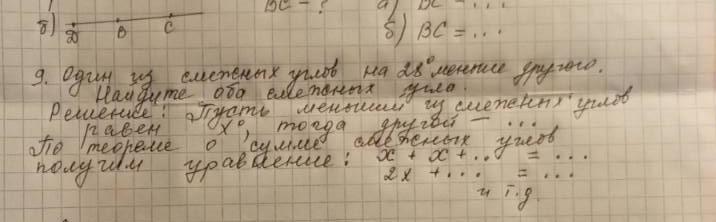 BC = ?
а) BC = ...
б)
D B C
б) BC = ...
9. Один из смежных углов на 28° меньше другого.
Найдите оба смежных угла.
Решение: Пусть меньший из смежных углов
равен x°, тогда другой — ...
По теореме о сумме смежных углов
получим уравнение: x + x + .. = ...
2x + ... = ...
и т.д.